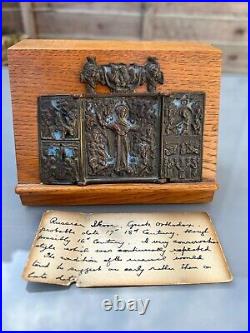 Russian Ikon, Greek Orthodox,
probable date 17th 18th Century, though
possibly 16th Century. A very conservative
style which was continually repeated
The condition of the enamel would
lead to suggest an early rather than
late date.